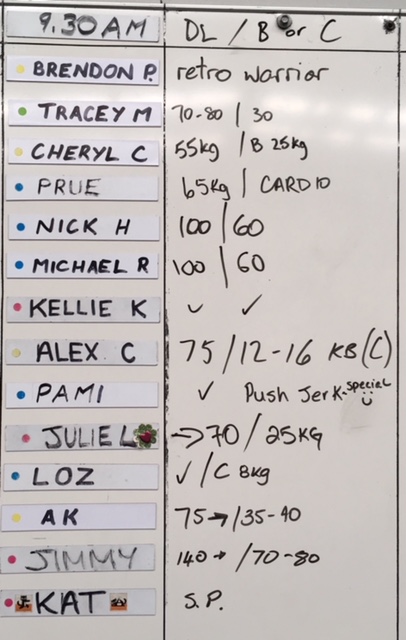 9.30 AM DL / B or C
BRENDON P. retro warrior
TRACEY M 70-80 | 30
CHERYL C 55kg / B 25kg
PRUE 65kg / CARDIO
NICK H 100 / 60
MICHAEL R 100 / 60
KELLIE K ✓ ✓
ALEX C 75 / 12-16 KB (C)
PAMI ✓ Push Jerk-special
JULIE L → 70 / 25KG
LOZ ✓ / C 8kg
AK 75 → / 35-40
JIMMY 140 → / 70-80
KAT S.P.